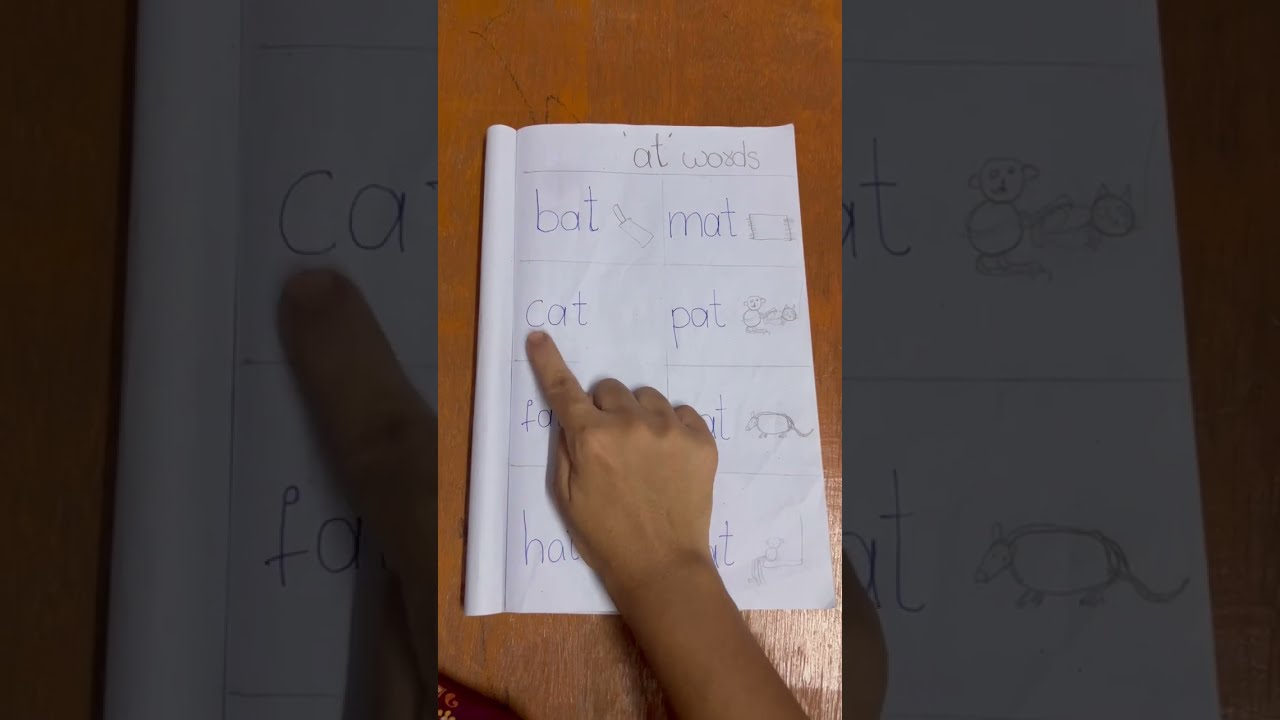 'at' words
bat mat
cat pat
fa at
hat at